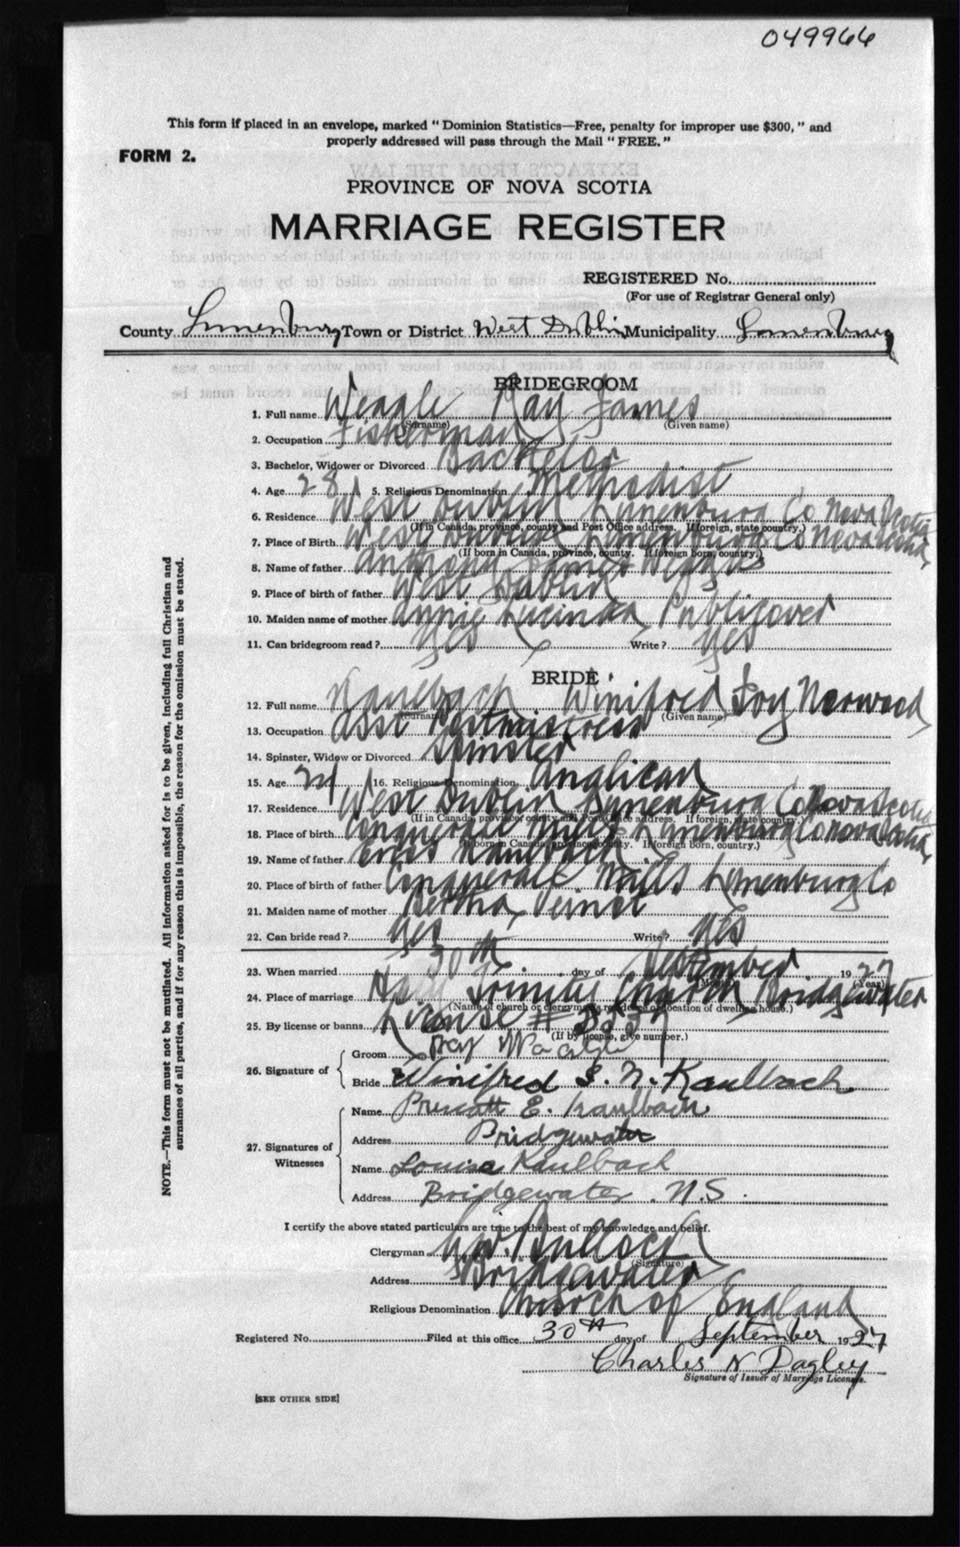 049966
This form if placed in an envelope, marked "Dominion Statistics—Free, penalty for improper use $300," and
properly addressed will pass through the Mail "FREE."
FORM 2.
PROVINCE OF NOVA SCOTIA
MARRIAGE REGISTER
REGISTERED No.
(For use of Registrar General only)
County Lunenburg Town or District West Dublin Municipality Lunenburg
BRIDEGROOM
1. Full name Weagle Ray James
(Surname) (Given name)
2. Occupation Fisherman
3. Bachelor, Widower or Divorced Bachelor
4. Age 28 5. Religious Denomination Methodist
6. Residence West Dublin Lunenburg Co Nova Scotia
(If in Canada, province, county and Post Office address. If foreign, state country.)
7. Place of Birth West Dublin Lunenburg Co Nova Scotia
(If born in Canada, province, county. If foreign born, country.)
8. Name of father James
9. Place of birth of father West Dublin
10. Maiden name of mother Annie Lucinda Publicover
11. Can bridegroom read? Yes Write? Yes
BRIDE
12. Full name Kaulbach Winifred Joy Norwood
(Surname) (Given name)
13. Occupation Asst Postmistress
14. Spinster, Widow or Divorced Spinster
15. Age 24 16. Religious Denomination Anglican
17. Residence West Dublin Lunenburg Co Nova Scotia
(If in Canada, province, county and Post Office address. If foreign, state country.)
18. Place of birth Conquerall Mills Lunenburg Co Nova Scotia
(If born in Canada, province, county. If foreign born, country.)
19. Name of father Kaulbach
20. Place of birth of father Conquerall Mills Lunenburg Co
21. Maiden name of mother Bertha Veinot
22. Can bride read? Yes Write? Yes
23. When married 30th day of September 1927
(Month) (Year)
24. Place of marriage Holy Trinity Church Bridgewater
(Name of church or clergyman's residence or location of dwelling house.)
25. By license or banns License #
(If by license, give number.)
26. Signature of
Groom Ray Weagle
Bride Winifred J. N. Kaulbach
27. Signatures of Witnesses
Name Prescott E. Kaulbach
Address Bridgewater
Name Louise Kaulbach
Address Bridgewater N.S.
I certify the above stated particulars are true to the best of my knowledge and belief.
Clergyman Bullock
(Signature)
Address Bridgewater
Religious Denomination Church of England
Registered No. Filed at this office 30th day of September 1927
Charles N Dagley
Signature of Issuer of Marriage Licenses.
[SEE OTHER SIDE]
NOTE.—This form must not be mutilated. All information asked for is to be given, including full Christian and
surnames of all parties, and if for any reason this is impossible, the reason for the omission must be stated.